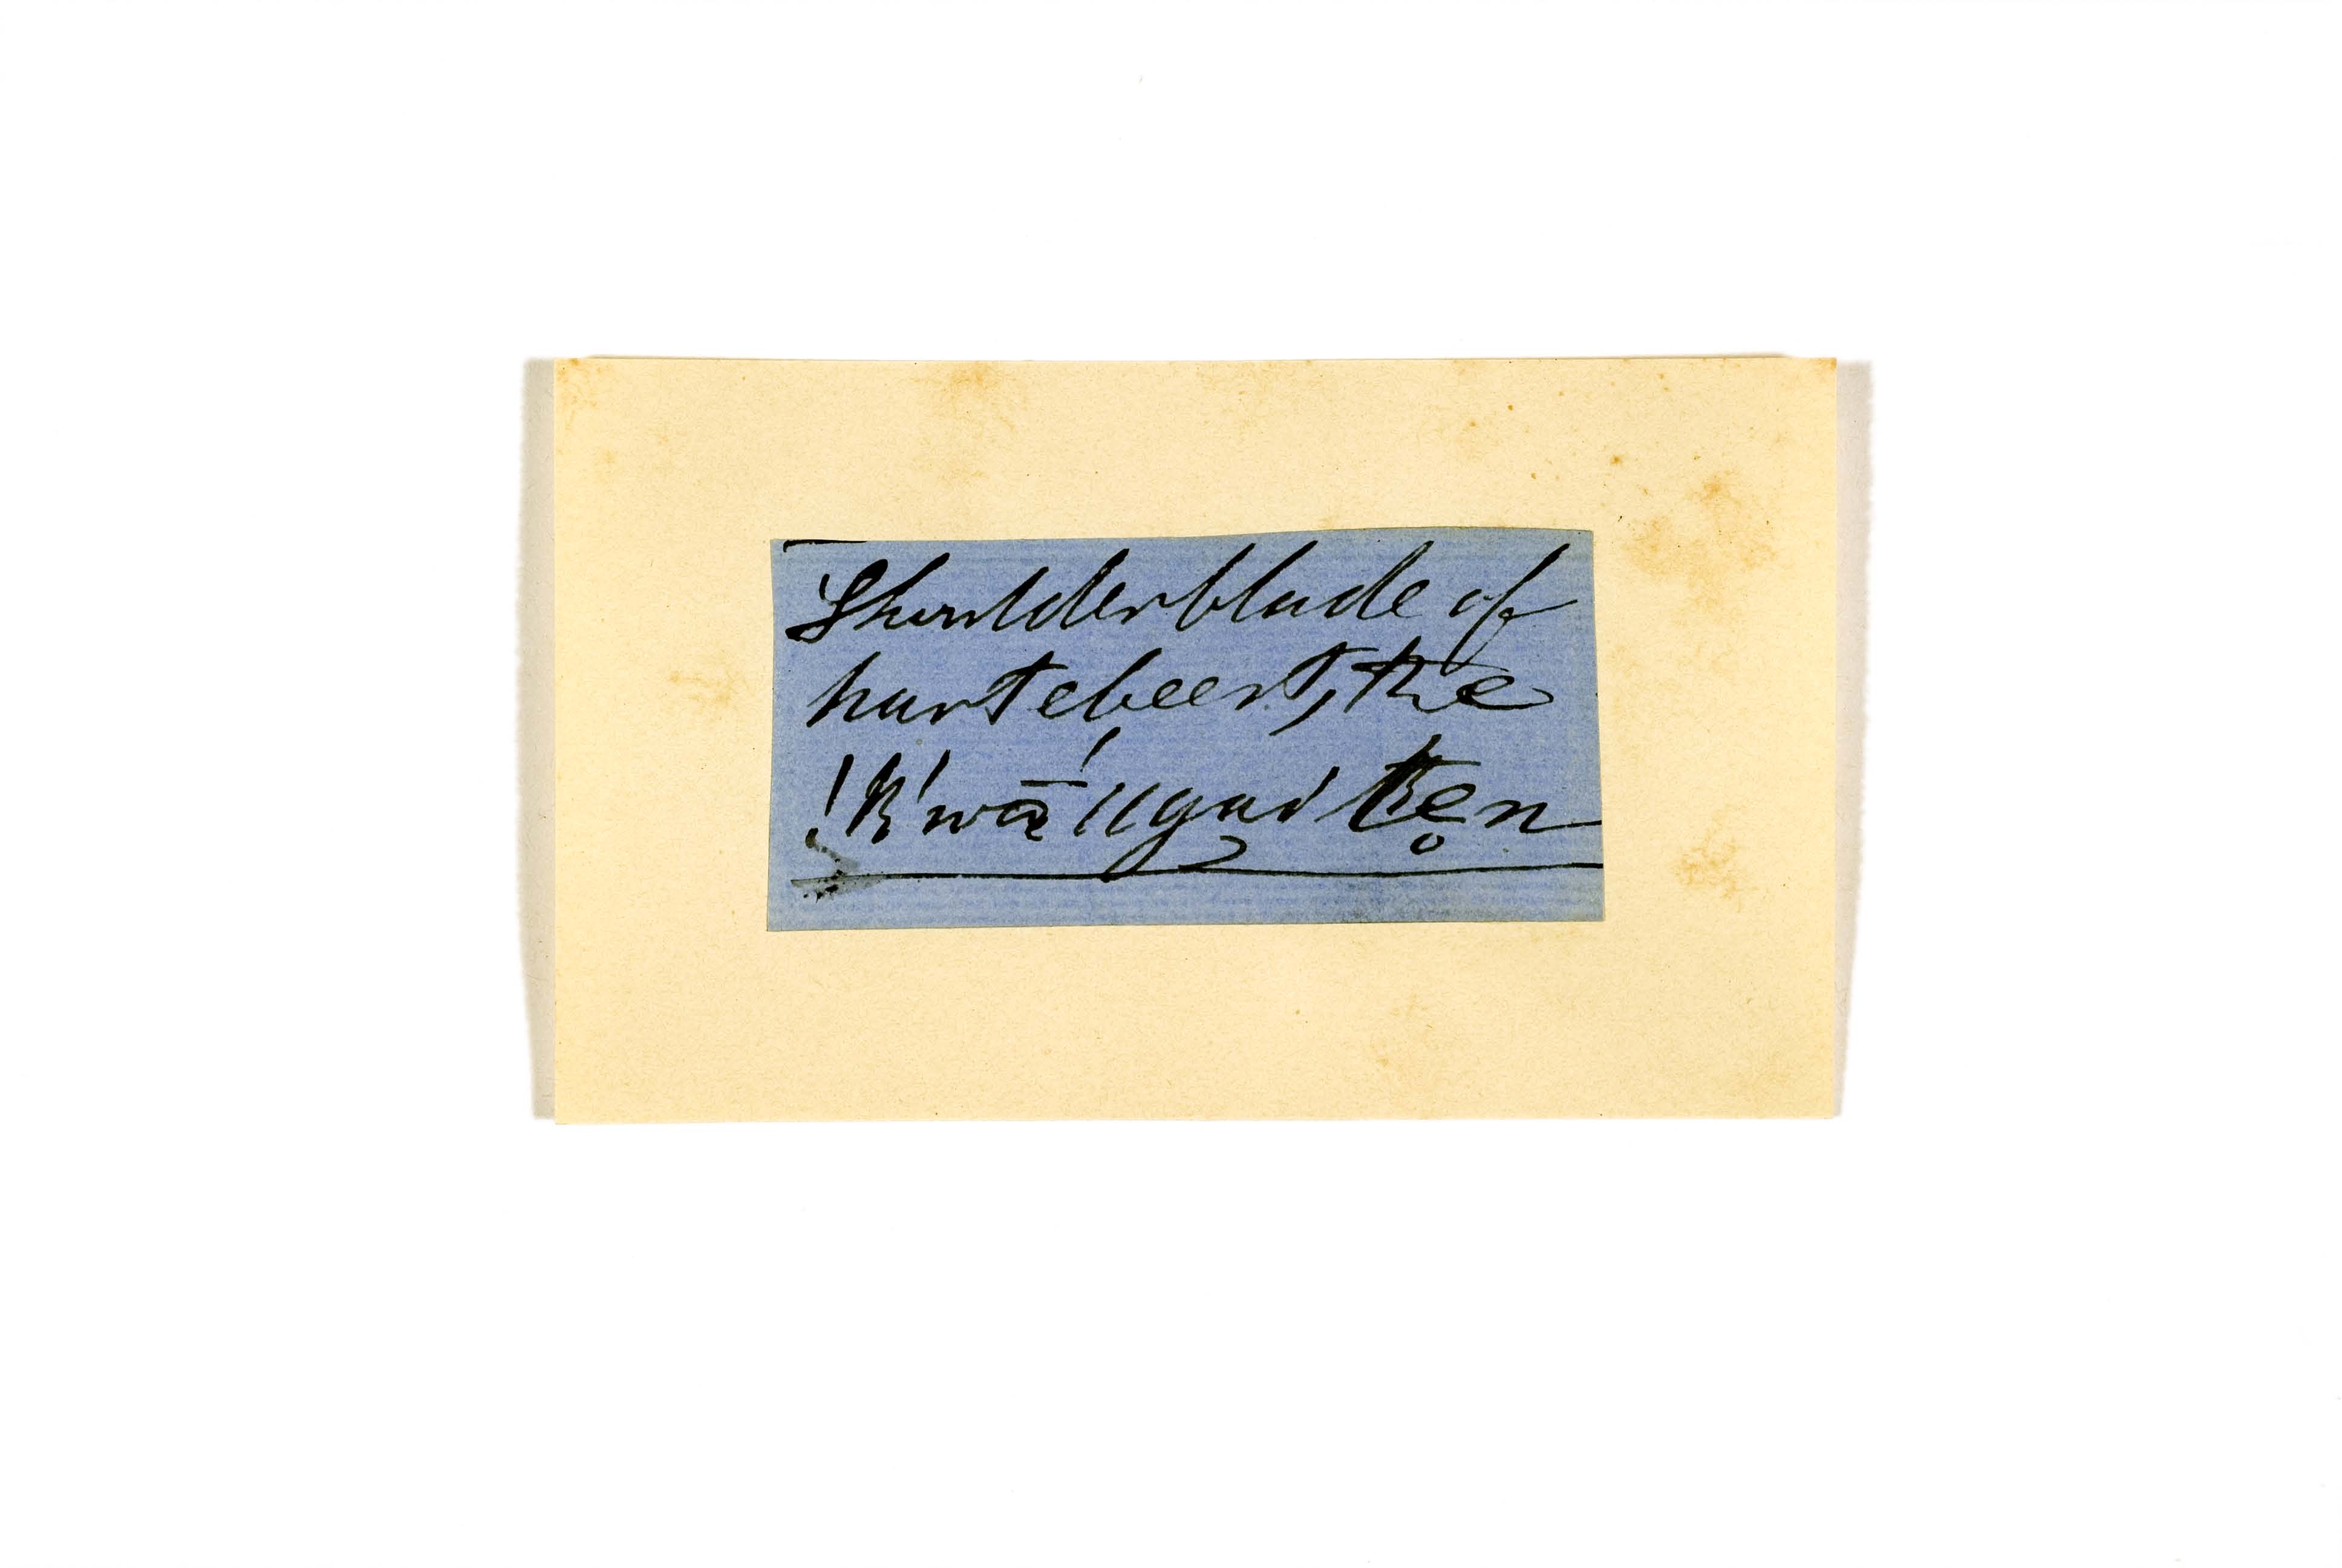 Shoulderblade of
hartebeest, the
!k'wā́ ǁgaú tten